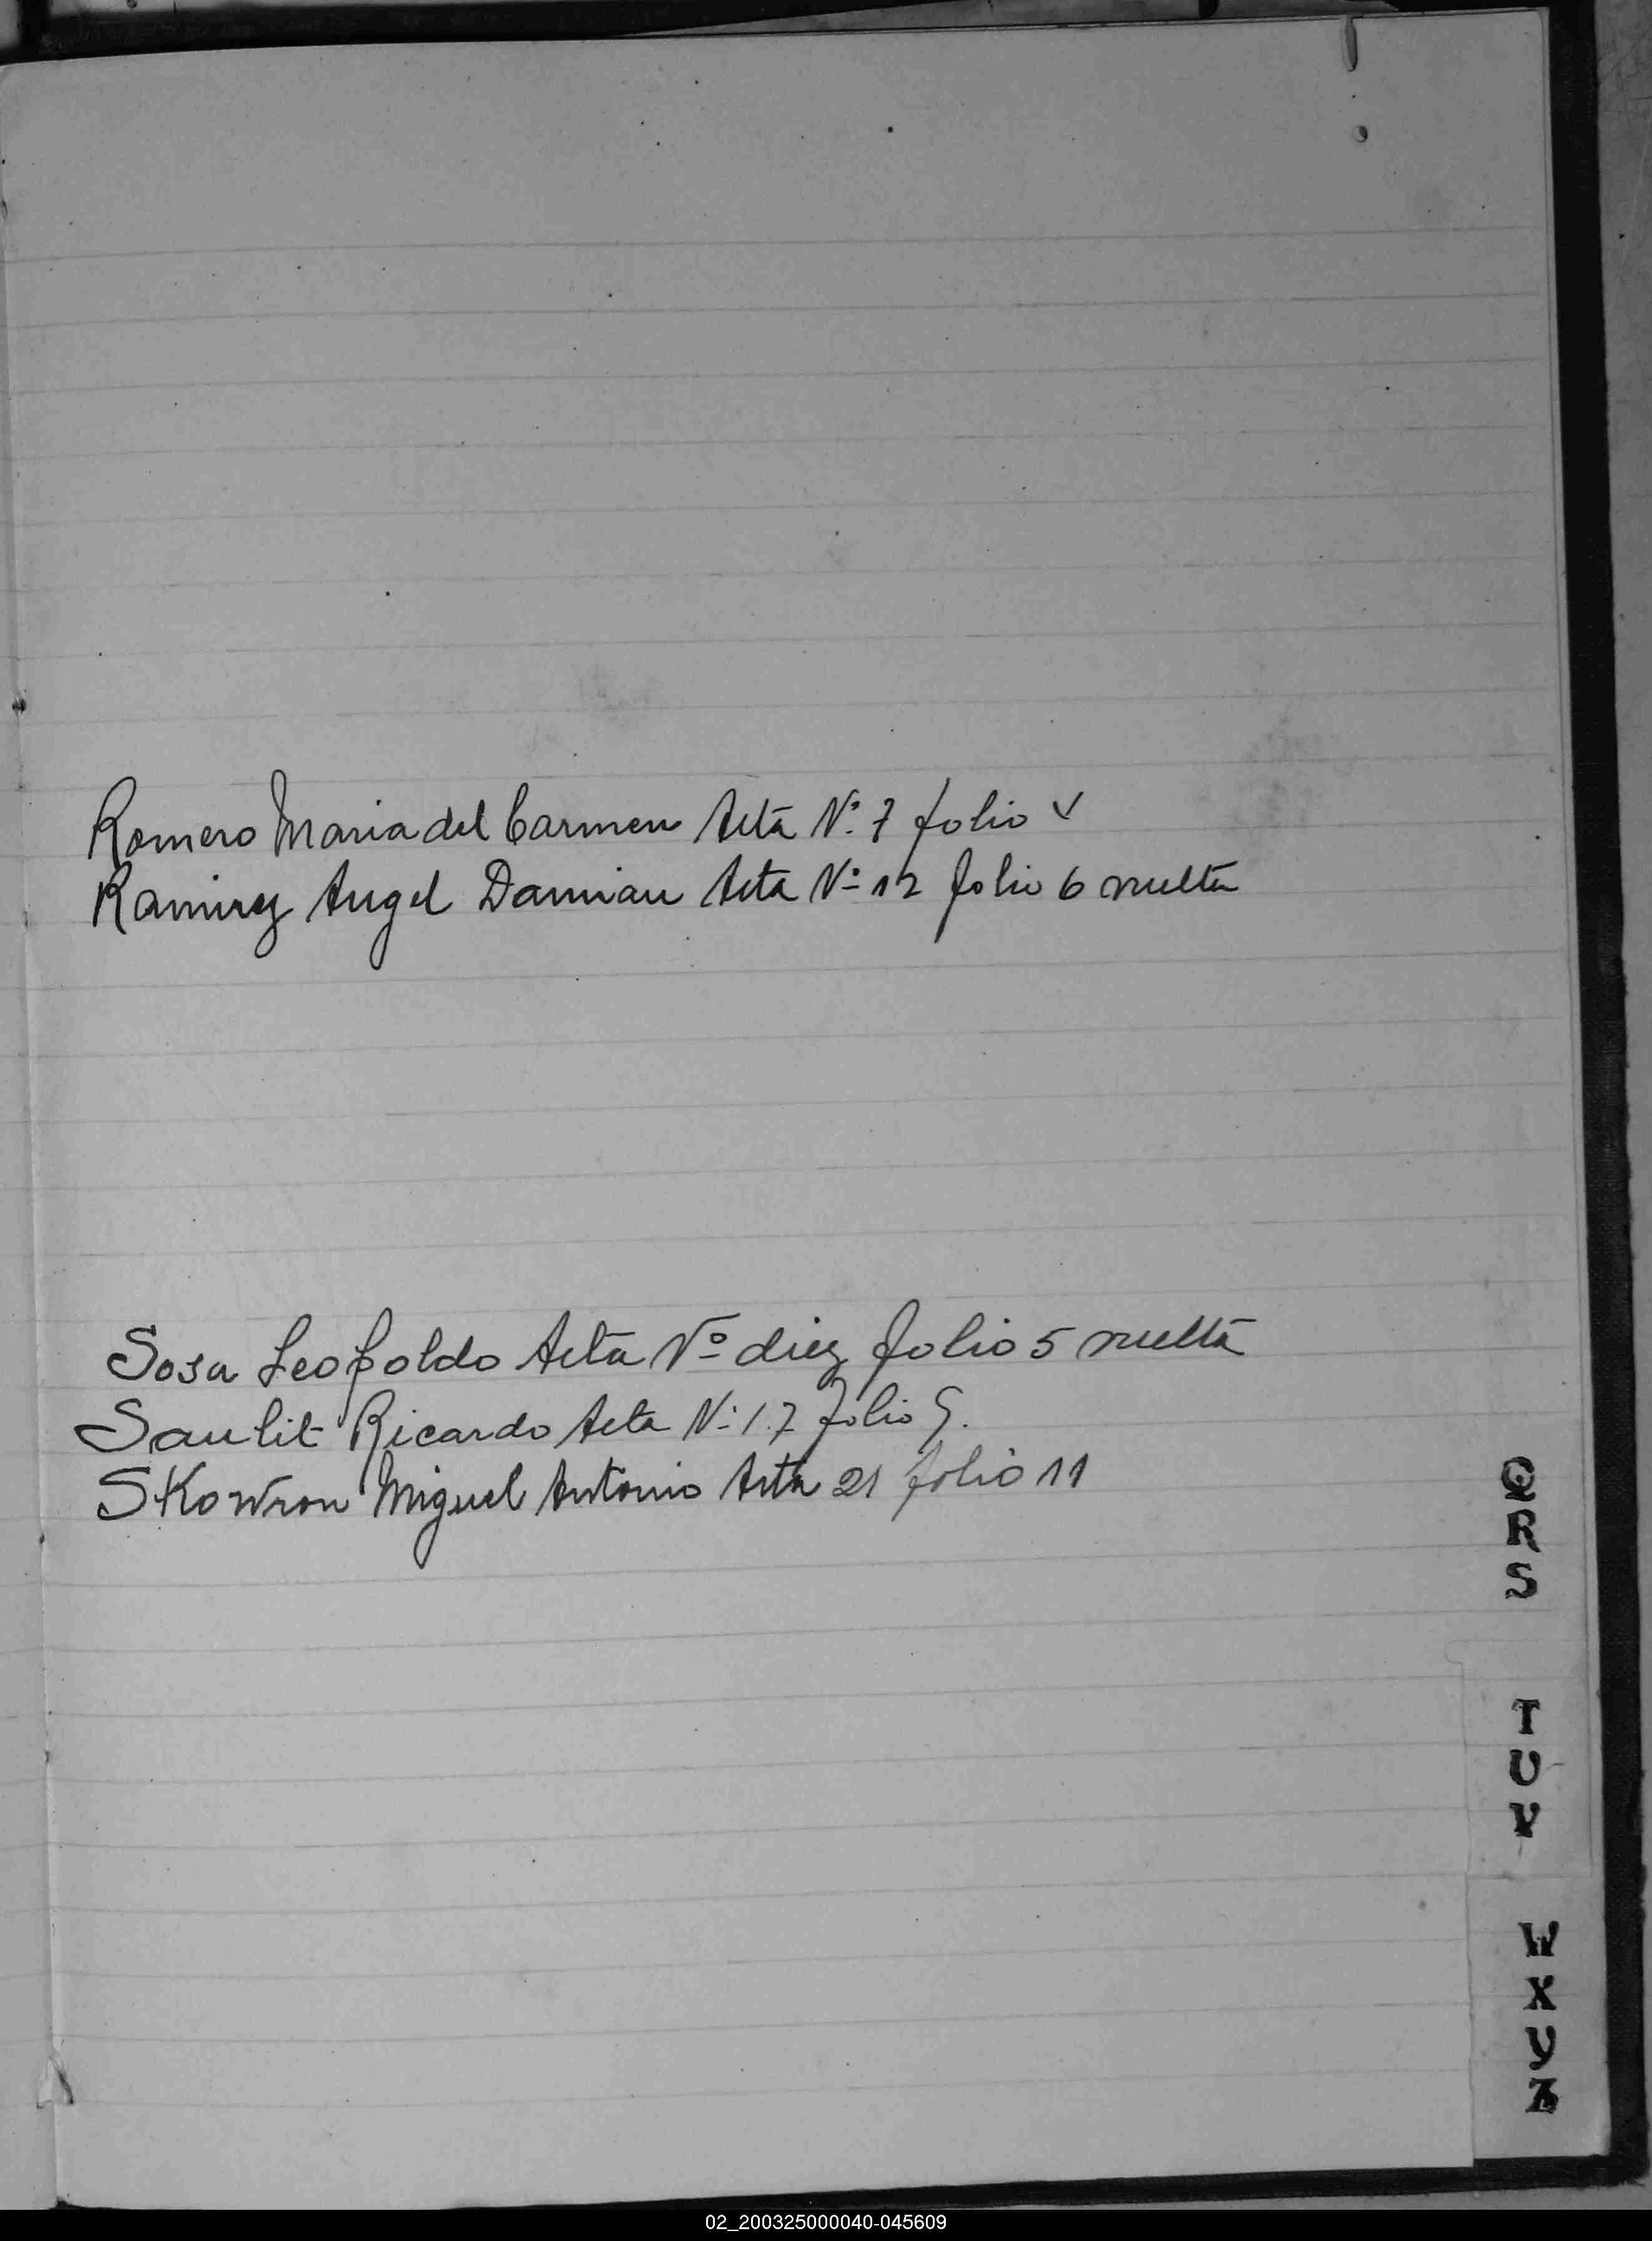 Romero Maria del Carmen Acta Nº 7 folio
Ramirez Angel Damian Acta Nº 12 folio 6 vuelta
Sosa Leopoldo Acta Nº diez folio 5 vuelta
Ricardo Acta Nº 17 folio 9.
SKowron Miguel Antonio Acta 21 folio 11
Q
R
S
T
U
V
W
X
Y
Z
02_200325000040-045609